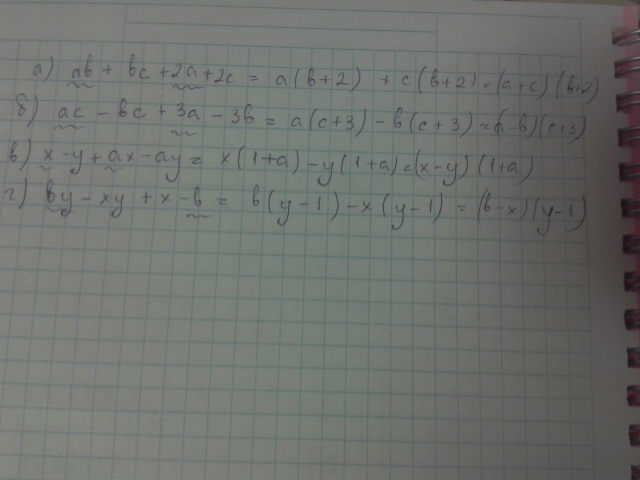 а) ab + bc + 2a + 2c = a(b+2) + c(b+2) = (a+c)(b+2)
б) ac - bc + 3a - 3b = a(c+3) - b(c+3) = (a-b)(c+3)
в) x - y + ax - ay = x(1+a) - y(1+a) = (x-y)(1+a)
г) by - xy + x - b = b(y-1) - x(y-1) = (b-x)(y-1)